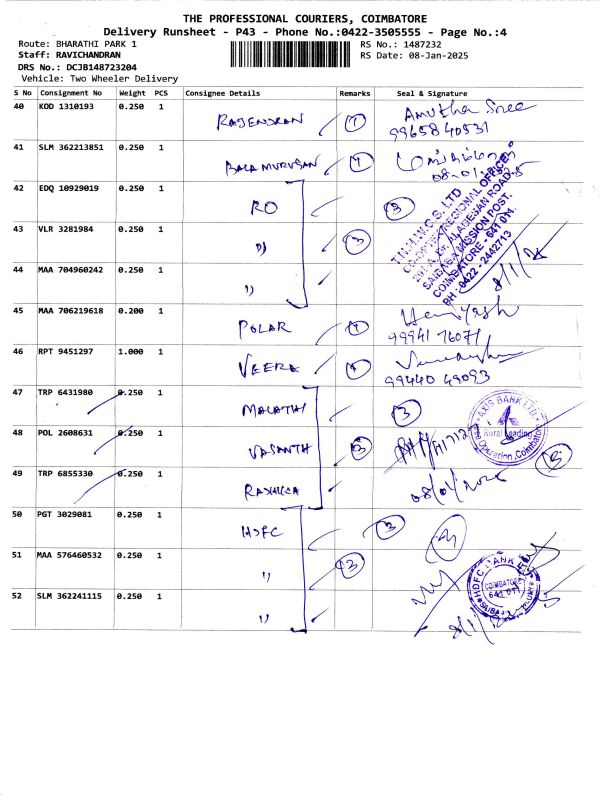 THE PROFESSIONAL COURIERS, COIMBATORE
Delivery Runsheet - P43 - Phone No.:0422-3505555 - Page No.:4
Route: BHARATHI PARK 1 RS No.: 1487232
Staff: RAVICHANDRAN RS Date: 08-Jan-2025
DRS No.: DCJB148723204
Vehicle: Two Wheeler Delivery
S No Consignment No Weight PCS Consignee Details Remarks Seal & Signature
40 KOD 1310193 0.250 1 RAJENDRAN 1 Amutha Sree
9965840531
41 SLM 362213851 0.250 1 BALA MURUGAN 1
08-01-
42 EDQ 10929019 0.250 1 RO 3
43 VLR 3281984 0.250 1 " 3
44 MAA 704960242 0.250 1 " 8/1/25
T.N.H.W.C.S. LTD
SAIBABA MISSION POST.
COIMBATORE - 641 011.
PH: 0422 - 2442713
45 MAA 706219618 0.200 1 POLAR 1
99941 76071
46 RPT 9451297 1.000 1 VEERA 1
99440 49093
47 TRP 6431980 0.250 1 MALATHI 3
48 POL 2608631 0.250 1 VASANTH 3
49 TRP 6855330 0.250 1
AXIS BANK LTD.
Rural Lending
Operation, Coimbatore
50 PGT 3029081 0.250 1 HDFC 3
51 MAA 576460532 0.250 1 " 3
52 SLM 362241115 0.250 1 "
HDFC BANK
COIMBATORE
641 011